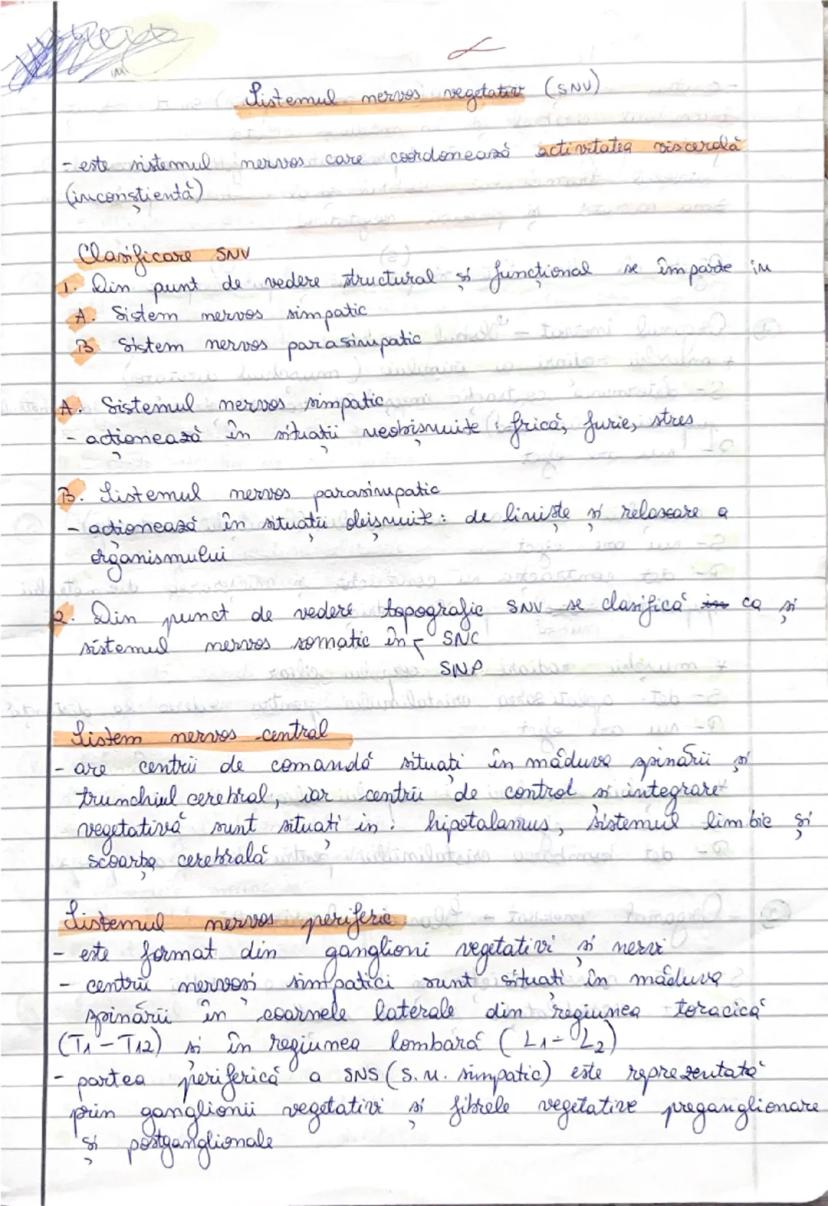 Sistemul nervos vegetativ (SNV)
- este sistemul nervos care coordonează activitatea viscerală
(inconștientă)
Clasificare SNV
1. Din punt de vedere structural și funcțional se împarte in
A. Sistem nervos simpatic
B Sistem nervos parasimpatic
A. Sistemul nervos simpatic
- acționează în situații neobișnuite: frică, furie, stres
B. Sistemul nervos parasimpatic
- acționează în situații obișnuite: de liniște și relaxare a
organismului
2. Din punct de vedere topografic SNV se clasifică ca și
sistemul nervos somatic în SNC
SNP
Sistem nervos central
- are centrii de comandă situați în măduva spinării și
trunchiul cerebral, iar centrii de control și integrare
vegetativă sunt situați in: hipotalamus, sistemul limbic și
scoarța cerebrală
Sistemul nervos periferic
- este format din ganglioni vegetativi și nervi
- centrii nervosi simpatici sunt situați în măduva
spinării în coarnele laterale din regiunea toracică
(T1 - T12) si în regiunea lombară (L1 - L2)
- partea periferică a SNS (S.N. simpatic) este reprezentată
prin ganglionii vegetativi și fibrele vegetative preganglionare
și postganglionale